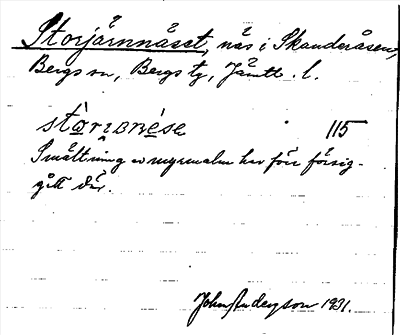 Storjärnnäset, näs i Skanderåsen,
Bergs sn, Bergs tg, Jämtl. l.
115
Smältning av myrmalm har förr försig-
gått där.
John Anderson 1931.